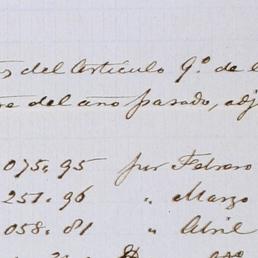 del artículo 9.º de l
re del año pasado, adj
075.95 por Febrero
251.96 " Marzo
058.81 " Abril